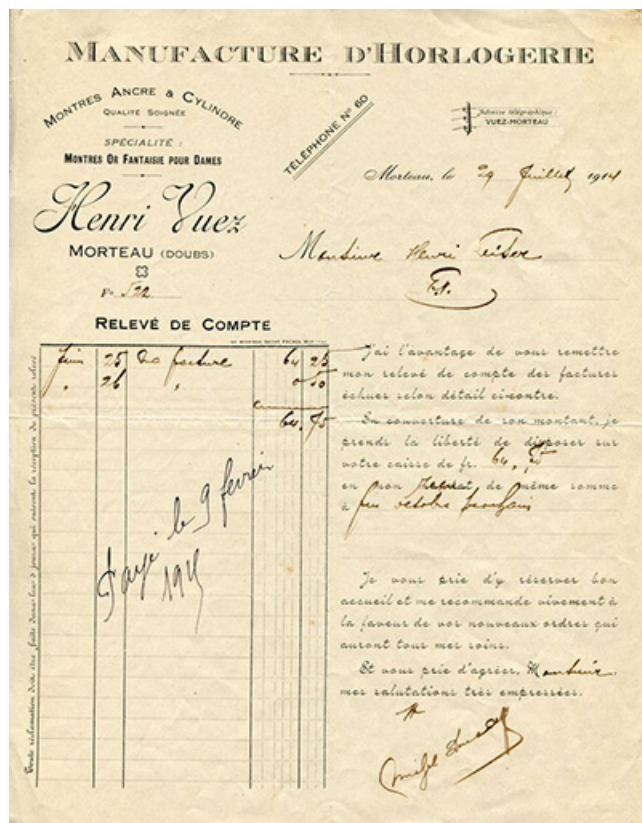 MANUFACTURE D'HORLOGERIE
MONTRES ANCRE & CYLINDRE
QUALITÉ SOIGNÉE
SPÉCIALITÉ :
MONTRES OR FANTAISIE POUR DAMES
Henri Vuez
MORTEAU (DOUBS)
TÉLÉPHONE Nº 60
Adresse télégraphique :
VUEZ-MORTEAU
Morteau, le 29 Juillet 1914
Monsieur Henri
Fo 522
RELEVÉ DE COMPTE
Juin 25 Ma facture 64 25
" 26 " 0 50
64. 75
Payé le 9 fevrier
1915
Toute réclamation doit être faite dans les 8 jours qui suivent la réception du présent relevé
J'ai l'avantage de vous remettre
mon relevé de compte des factures
échues selon détail ci-contre.
En couverture de son montant, je
prends la liberté de disposer sur
votre caisse de fr. 64,
en mon de même somme
à fin octobre prochain
Je vous prie d'y réserver bon
accueil et me recommande vivement à
la faveur de vos nouveaux ordres qui
auront tous mes soins.
Et vous prie d'agréer, Monsieur
mes salutations très empressées.